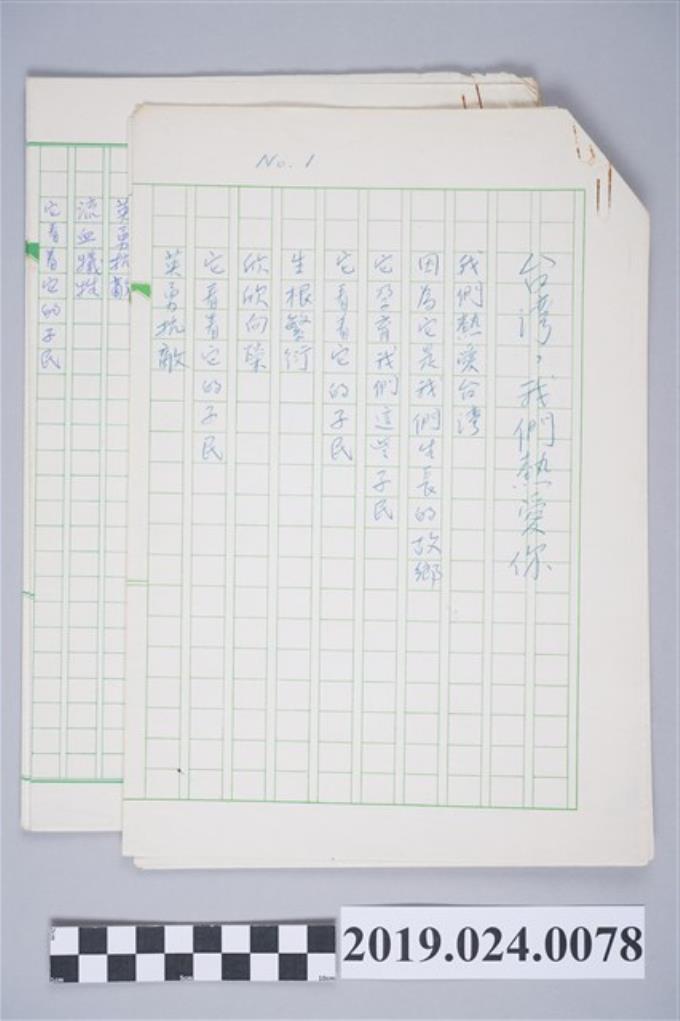 No. 1
台湾，我們熱愛你
我們熱愛台湾
因為它是我們生長的故鄉
它孕育我們這些子民
它看着它的子民
生根繁衍
欣欣向榮
它看着它的子民
英勇抗敵
英勇抗敵
流血犧牲
它看着它的子民
5cm
10cm
2019.024.0078